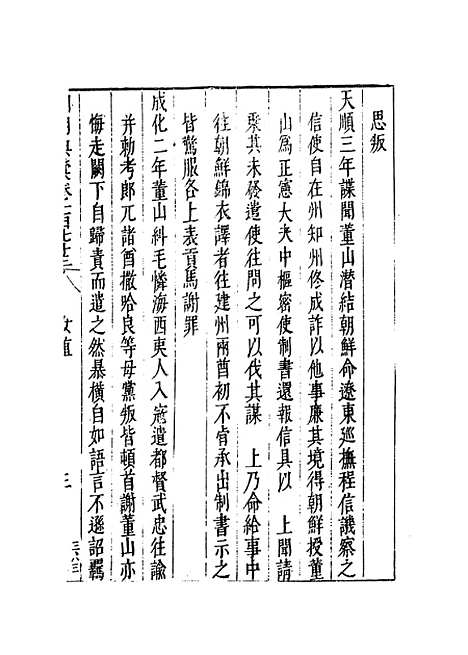 思叛
天順三年諜聞董山潛結朝鮮命遼東巡撫程信譏察之
信使自在州知州佟成詐以他事廉其境得朝鮮授董
山為正憲大夫中樞密使制書還報信具以 上聞請
乘其未發遣使往問之可以伐其謀 上乃命給事中
往朝鮮錦衣譯者往建州兩酋初不肯承出制書示之
皆驚服各上表貢馬謝罪
成化二年董山糾毛憐海西夷人入寇遣都督武忠往諭
并勅考郎兀諸酋撒哈良等毋黨叛皆頓首謝董山亦
悔走闕下自歸責而遣之然暴橫自如語言不遜詔羈
女直 三